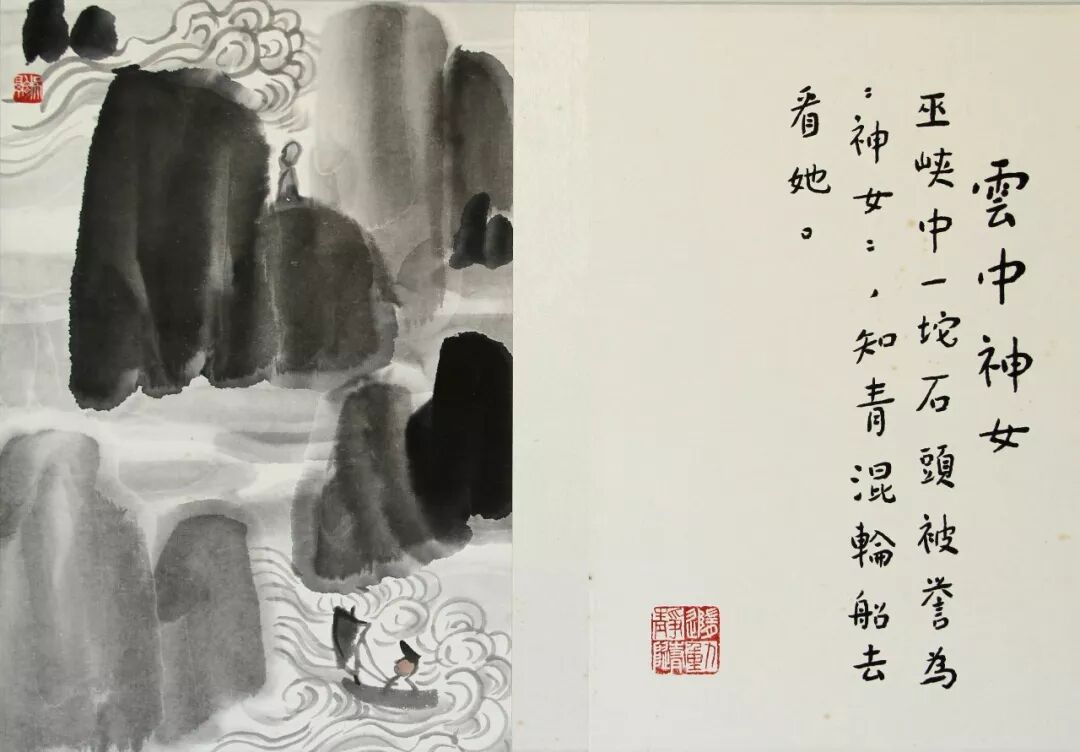 雲中神女
巫峽中一坨石頭被誉為
：神女：，知青混輪船去
看她。